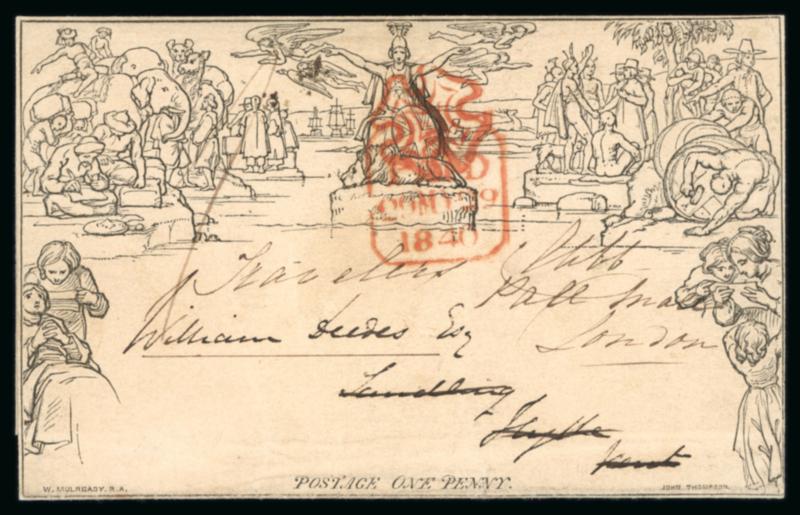 1840
Travellers Clubb
Pall Mall
William Deedes Esq
London
Sandling
Hythe
Kent
POSTAGE ONE PENNY.
W. MULREADY. R.A.
JOHN THOMPSON.